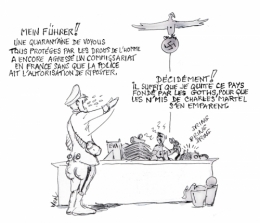 MEIN FÜHRER!
UNE QUARANTAINE DE VOYOUS
TOUS PROTÉGÉS PAR LES DROITS DE L'HOMME
A ENCORE AGRESSÉ UN COMMISSARIAT
EN FRANCE SANS QUE LA POLICE
AIT L'AUTORISATION DE RIPOSTER.
DÉCIDÉMENT!
IL SUFFIT QUE JE QUITTE CE PAYS
FONDÉ PAR LES GOTHS, POUR QUE
LES N'MIS DE CHARLES MARTEL
S'EN EMPARENT
DRIING
DRIING